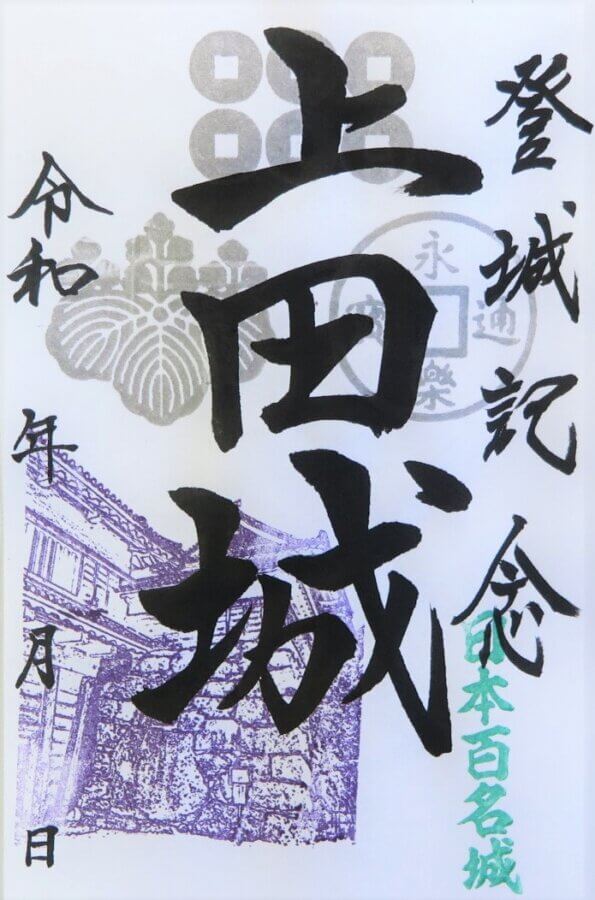 登城記念
日本百名城
上田城
永樂通寳
令和 年 月 日